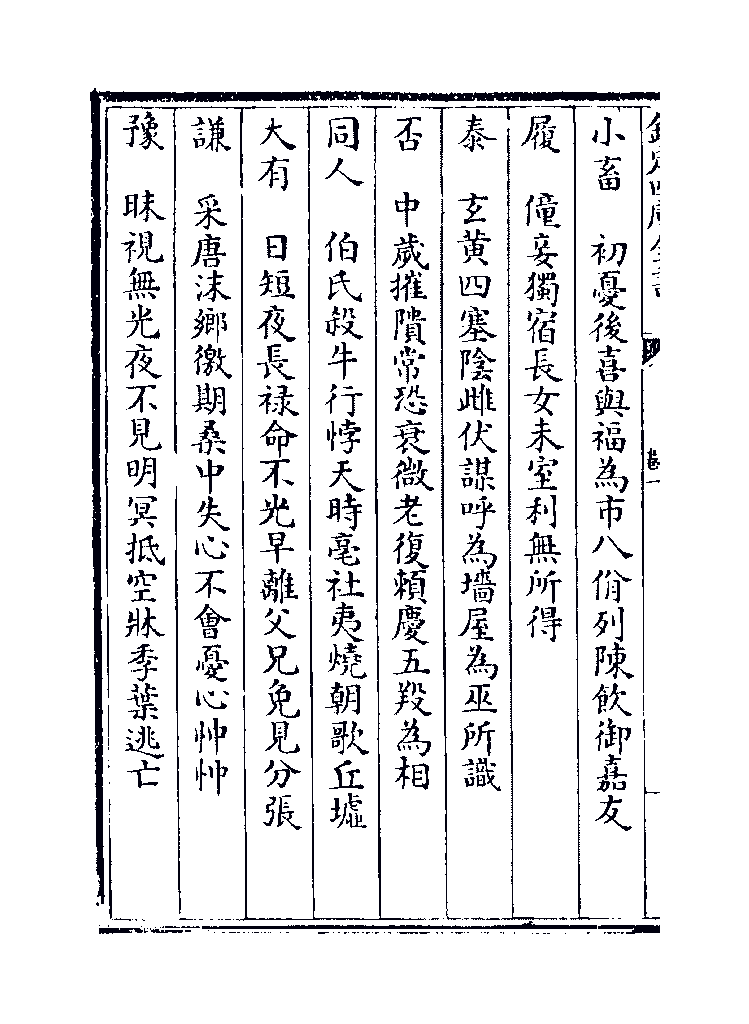 小畜　初憂後喜與福為市八佾列陳飲御嘉友
履　僮妾獨宿長女未室利無所得
泰　玄黄四塞陰雌伏謀呼為墻屋為巫所識
否　中歲摧隤常恐衰微老復賴慶五羖為相
同人　伯氏殺牛行悖天時亳社夷燒朝歌丘墟
大有　日短夜長禄命不光早離父兄免見分張
謙　采唐沬鄉徼期桑中失心不會憂心忡忡
豫　昧視無光夜不見明冥抵空牀季葉逃亡